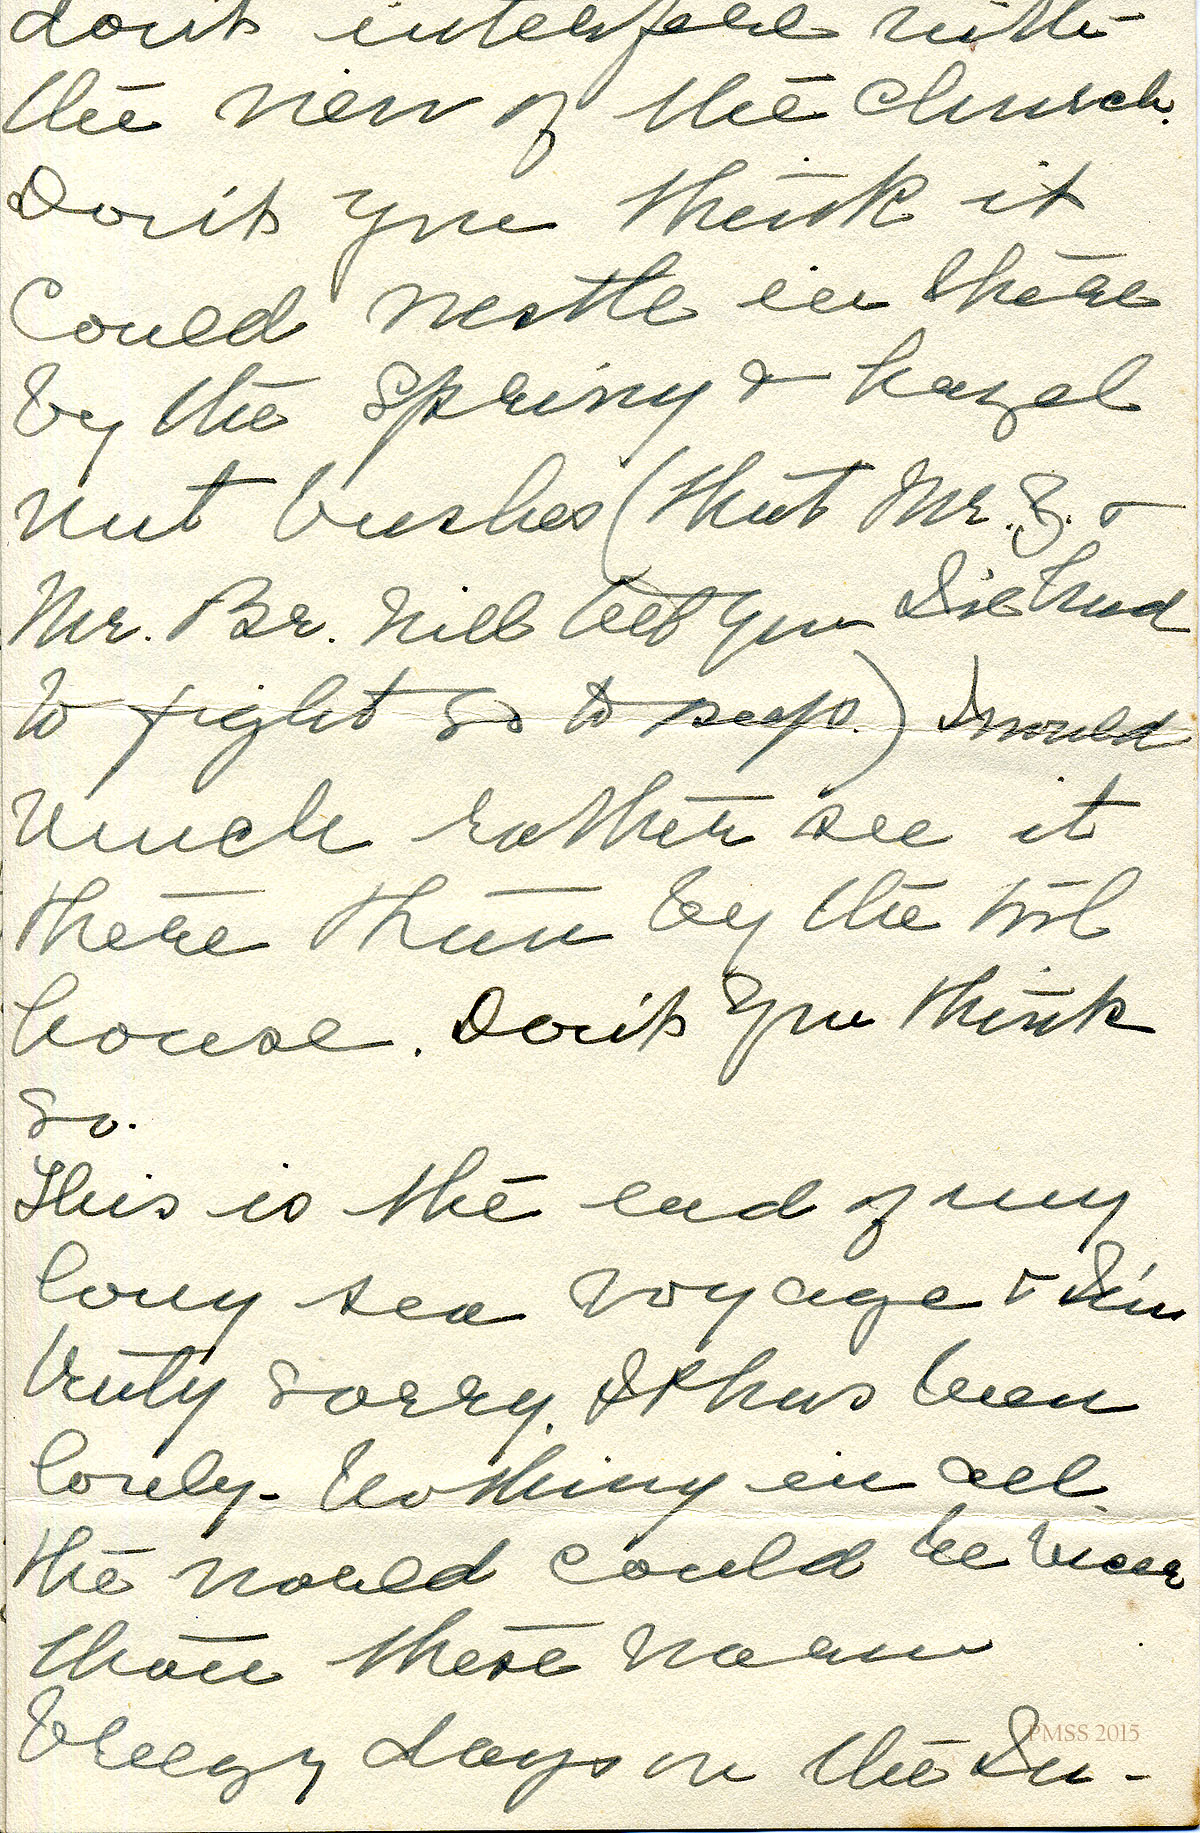 don't interfere with
the view of the church.
Don't you think it
could nestle in there
by the spring & hazel
nut bushes (that Mr. Z. &
Mr. Br. will tell you I've had
to fight so to keep.) I would
much rather see it
there than by the tool
house. Don't you think
so.
This is the end of my
long sea voyage & I'm
truly sorry. It has been
lovely. Nothing in all
the world could be nicer
than these warm
breezy days on the In-
PMSS 2015